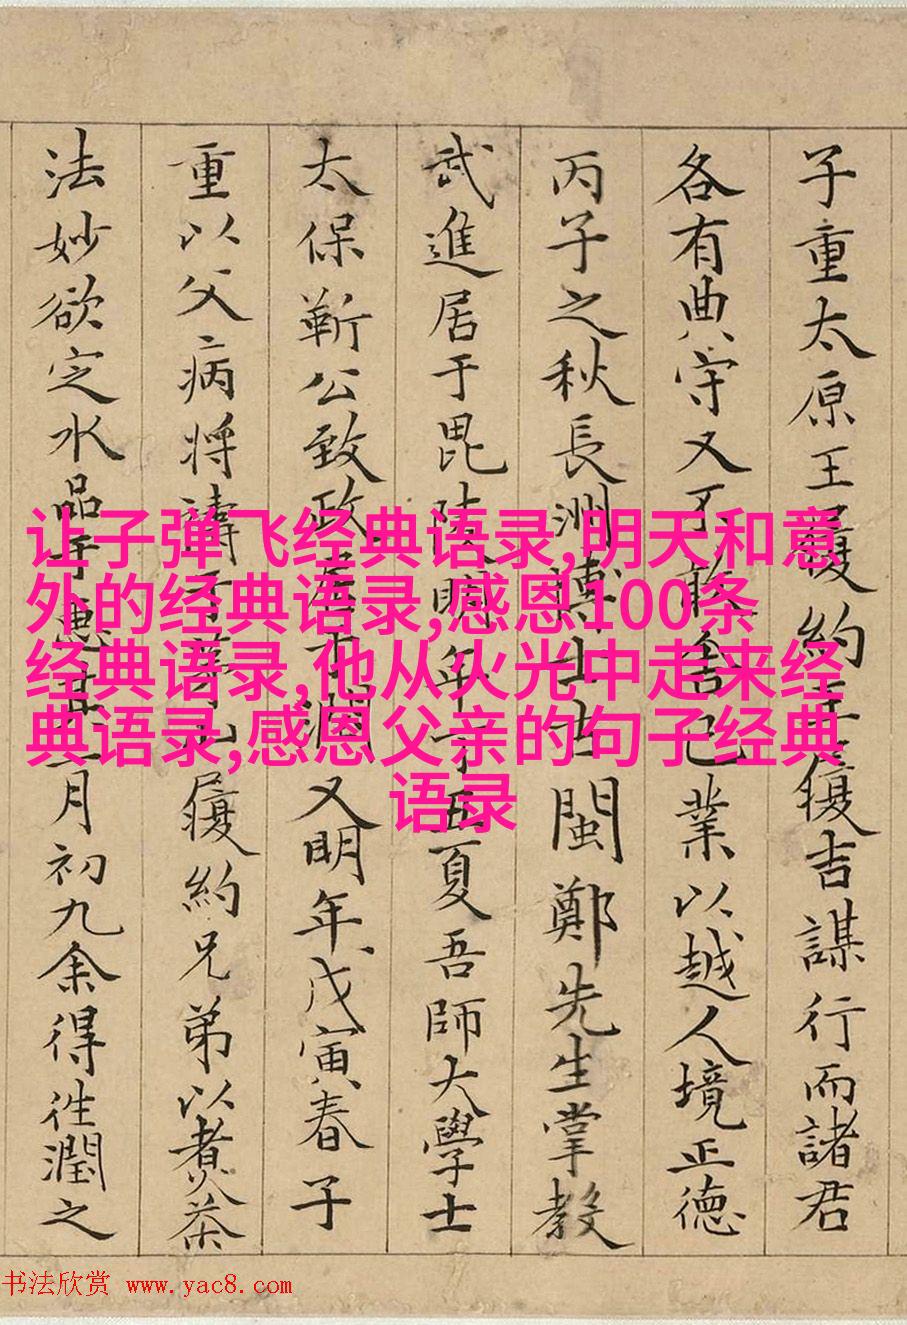 子重太原王履約王履吉謀行而諸君
各有典守又不敢舍己業以越人境正德
丙子之秋長洲博士古閩鄭先生掌教
武進居于毘陵明年丁丑夏吾師大學士
太保靳公致政居于潤又明年戊寅春子
重以父病將禱于茅山履約兄弟以煮茶
法妙欲定水品于惠其二月初九余得往潤之
让子弹飞经典语录,明天和意
外的经典语录,感恩100条
经典语录,他从火光中走来经
典语录,感恩父亲的句子经典
语录
书法欣赏 www.yac8.com